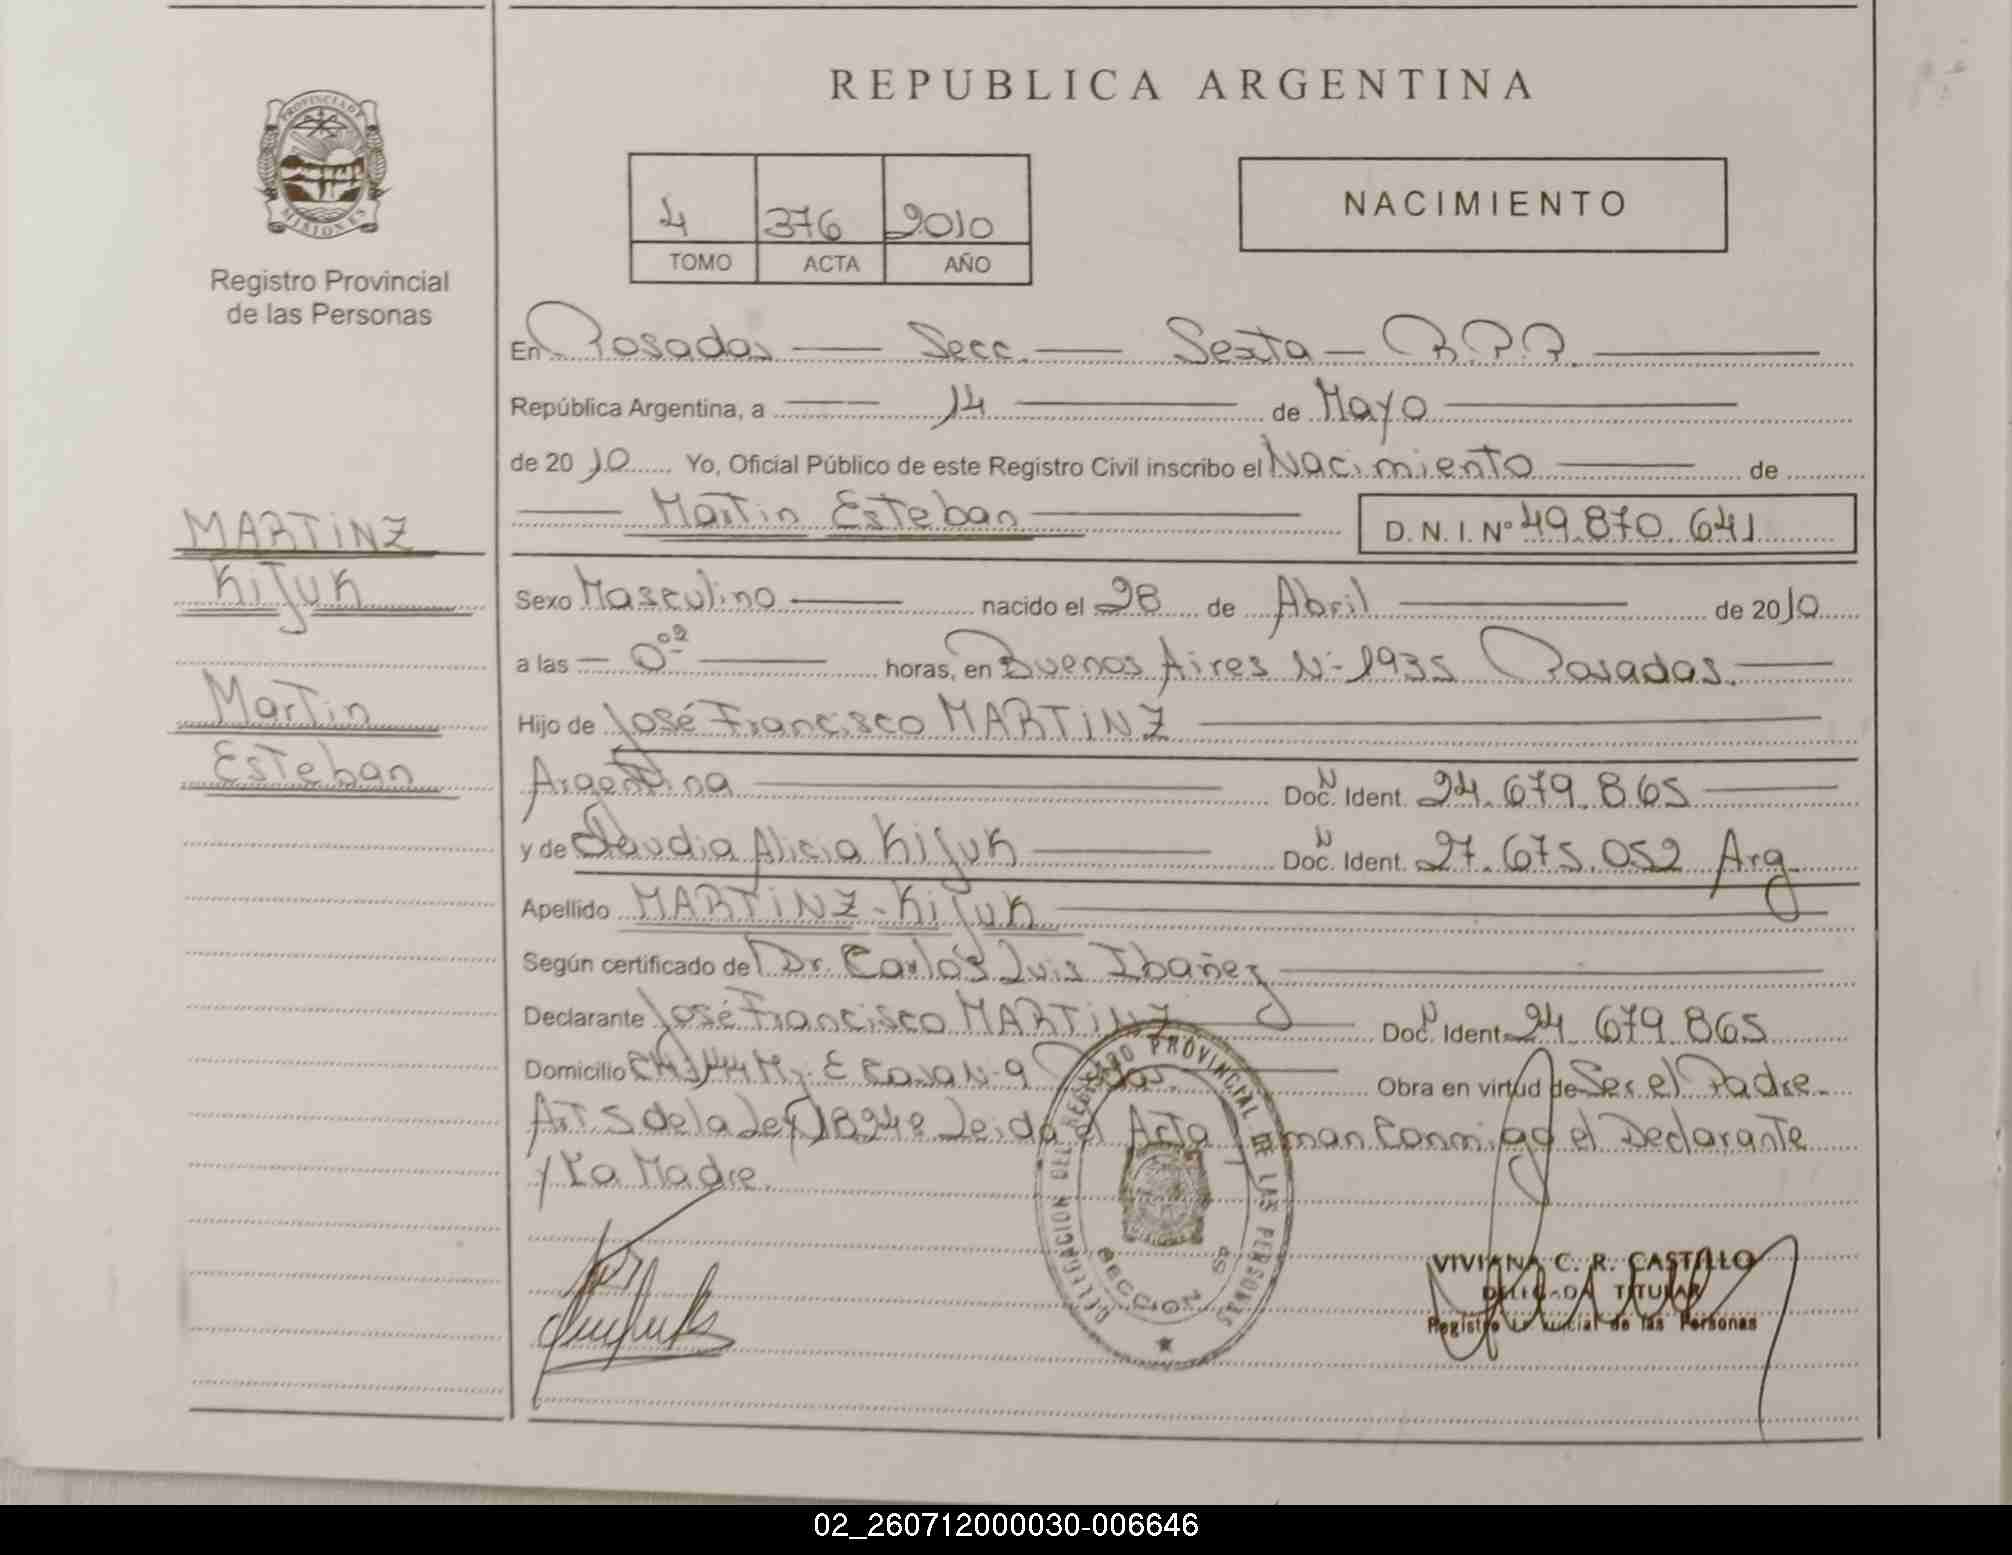 REPUBLICA ARGENTINA
PROVINCIA DE
MISIONES
Registro Provincial
de las Personas
4 376 2010
TOMO ACTA AÑO
NACIMIENTO
En Posadas — Secc. — Sexta — R.P.P.
República Argentina, a — 14 — de Mayo
de 2010 Yo, Oficial Público de este Registro Civil inscribo el Nacimiento — de
— Martin Esteban — D. N. I. Nº 49.870.641
MARTINZ
KiJuK
Martin
Esteban
Sexo Masculino — nacido el 28 de Abril — de 2010
a las — 0⁰² — horas, en Buenos Aires N- 1935 Posadas. —
Hijo de José Francisco MARTINZ —
Argentina — Doc. N Ident. 24.679.865 —
y de Claudia Alicia KiJuK — Doc. N Ident. 27.675.052 Arg
Apellido MARTINZ - KiJuK —
Según certificado de Dr. Carlos Luis Ibañez —
Declarante José Francisco MARTINZ — Doc. N Ident. 24 679 865
Domicilio CH 144 Mz. E Casa N- 9 — Obra en virtud de Ser el Padre
Art 5 de la Ley 18248 Leida el Acta Firman Conmigo el Declarante
y La Madre.
DELEGACION DEL REGISTRO PROVINCIAL DE LAS PERSONAS
SECCION 6ª
VIVIANA C. R. CASTILLO
DELEGADA TITULAR
Registro Provincial de las Personas
02_260712000030-006646